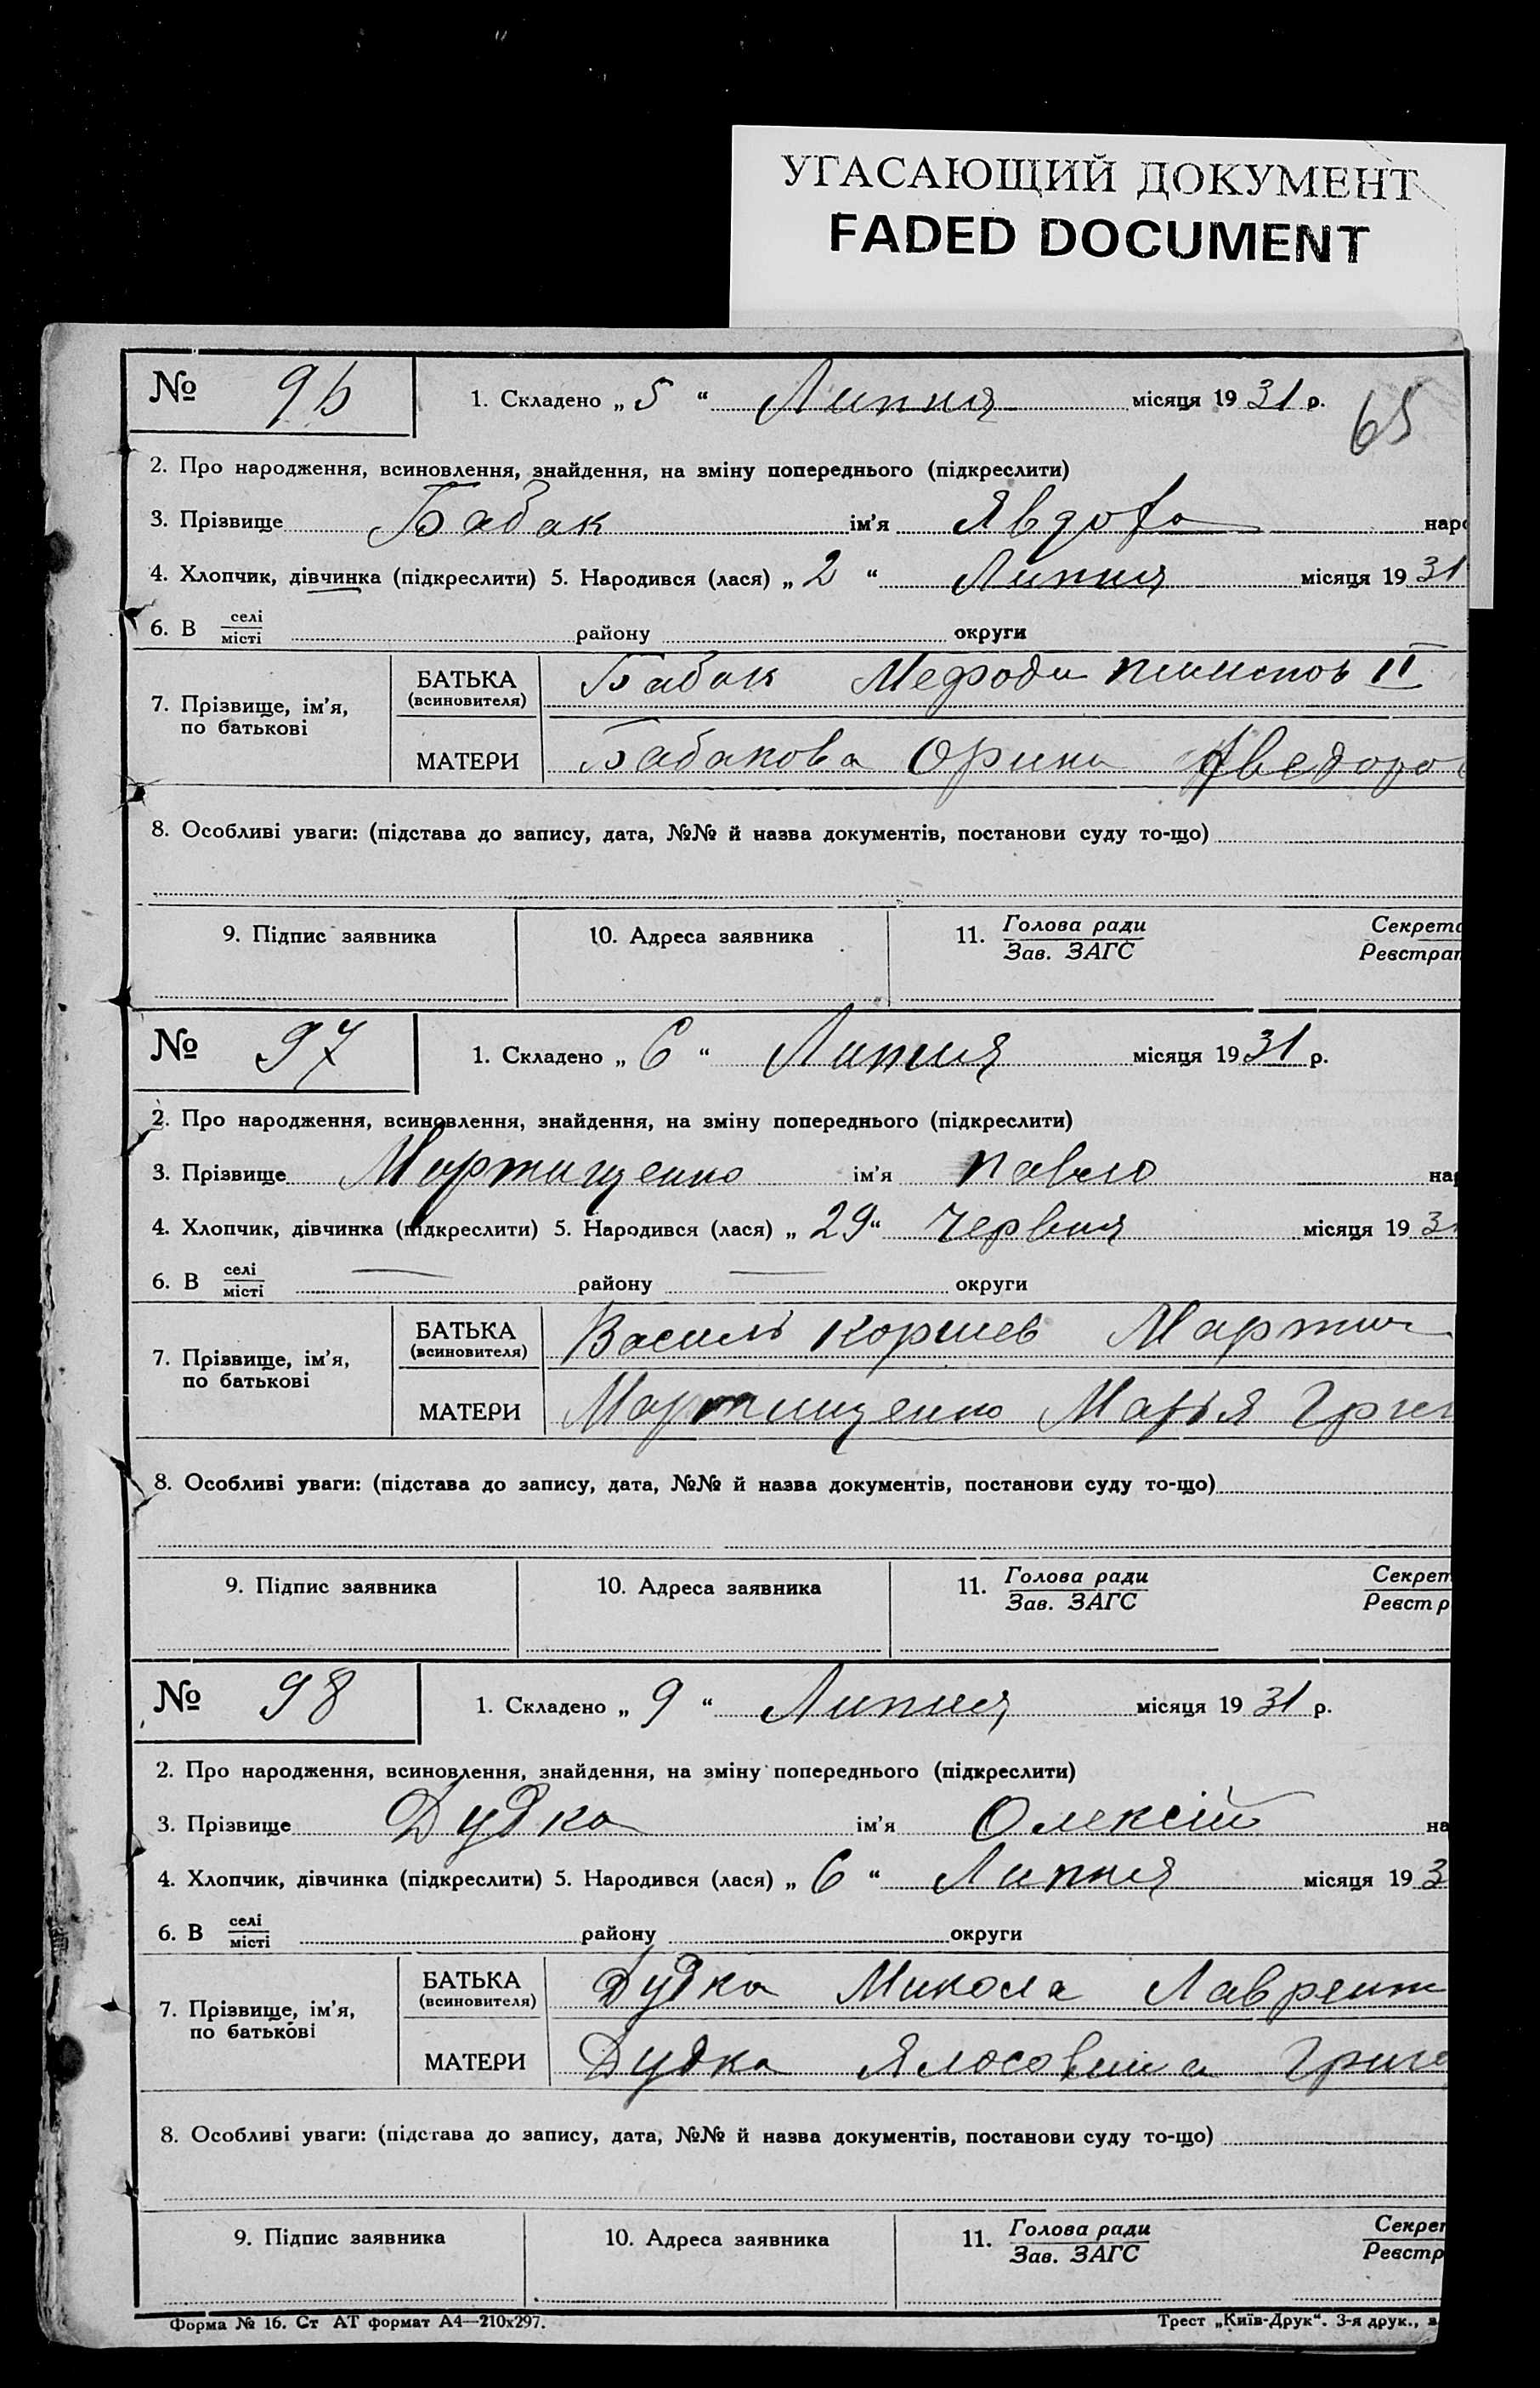 УГАСАЮЩИЙ ДОКУМЕНТ
FADED DOCUMENT
№ 96 1. Складено „ 5 “ Липня місяця 19 31 р.
65
2. Про народження, всиновлення, знайдення, на зміну попереднього (підкреслити)
3. Прізвище Бабак ім’я Явдоха наро
4. Хлопчик, дівчинка (підкреслити) 5. Народився (лася) „ 2 “ Липня місяця 19 31
6. В селі
місті району округи
7. Прізвище, ім’я,
по батькові
БАТЬКА
(всиновителя)
Бабак Мефоди II
МАТЕРИ
Бабакова Орина
8. Особливі уваги: (підстава до запису, дата, №№ й назва документів, постанови суду то-що)
9. Підпис заявника 10. Адреса заявника 11. Голова ради Секрета
Зав. ЗАГС Реєстрат
№ 97 1. Складено „ 6 “ Липня місяця 19 31 р.
2. Про народження, всиновлення, знайдення, на зміну попереднього (підкреслити)
3. Прізвище Мартищенко ім’я Павло на
4. Хлопчик, дівчинка (підкреслити) 5. Народився (лася) „ 29 “ Червня місяця 19 31
6. В селі
місті району округи
7. Прізвище, ім’я,
по батькові
БАТЬКА
(всиновителя)
Василь Корнієв Мартищ
МАТЕРИ
Мартищенко Мар’я Григ
8. Особливі уваги: (підстава до запису, дата, №№ й назва документів, постанови суду то-що)
9. Підпис заявника 10. Адреса заявника 11. Голова ради Секрет
Зав. ЗАГС Реєстр
№ 98 1. Складено „ 9 “ Липня місяця 19 31 р.
2. Про народження, всиновлення, знайдення, на зміну попереднього (підкреслити)
3. Прізвище Дудка ім’я Олексій на
4. Хлопчик, дівчинка (підкреслити) 5. Народився (лася) „ 6 “ Липня місяця 19 3
6. В селі
місті району округи
7. Прізвище, ім’я,
по батькові
БАТЬКА
(всиновителя)
Дудка Микола Лаврент
МАТЕРИ
Дудка Григо
8. Особливі уваги: (підстава до запису, дата, №№ й назва документів, постанови суду то-що)
9. Підпис заявника 10. Адреса заявника 11. Голова ради Секрет
Зав. ЗАГС Реєстр
Форма № 16. Ст АТ формат А4—210x297. Трест „Київ-Друк“. 3-я друк., в